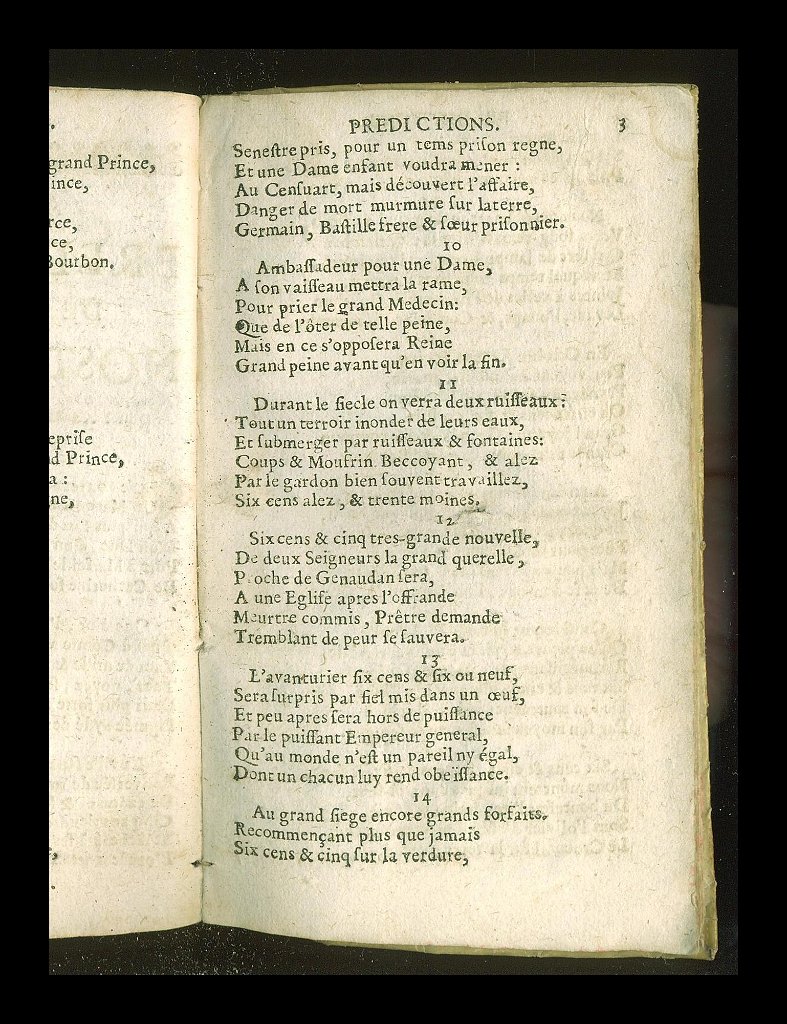 grand Prince,
ince,
rce,
ce,
Bourbon.
eprise
d Prince,
a :
ne,
PREDICTIONS. 3
Seneſtre pris, pour un tems priſon regne,
Et une Dame enfant voudra mener :
Au Cenſuart, mais découvert l'affaire,
Danger de mort murmure ſur laterre,
Germain, Baſtille frere & ſœur priſonnier.
10
Ambaſſadeur pour une Dame,
A ſon vaiſſeau mettra la rame,
Pour prier le grand Medecin:
Que de l'ôter de telle peine,
Mais en ce s'oppoſera Reine
Grand peine avant qu'en voir la fin.
11
Durant le ſiecle on verra deux ruiſſeaux :
Tout un terroir inonder de leurs eaux,
Et ſubmerger par ruiſſeaux & fontaines:
Coups & Moufrin Beccoyant, & alez
Par le gardon bien ſouvent travaillez,
Six cens alez, & trente moines.
12
Six cens & cinq tres-grande nouvelle,
De deux Seigneurs la grand querelle,
Proche de Genaudan ſera,
A une Egliſe apres l'offrande
Meurtre commis, Prêtre demande
Tremblant de peur ſe ſauvera.
13
L'avanturier ſix cens & ſix ou neuf,
Sera ſurpris par fiel mis dans un œuf,
Et peu apres ſera hors de puiſſance
Par le puiſſant Empereur general,
Qu'au monde n'eſt un pareil ny égal,
Dont un chacun luy rend obeïſſance.
14
Au grand ſiege encore grands forfaits,
Recommençant plus que jamais
Six cens & cinq ſur la verdure,